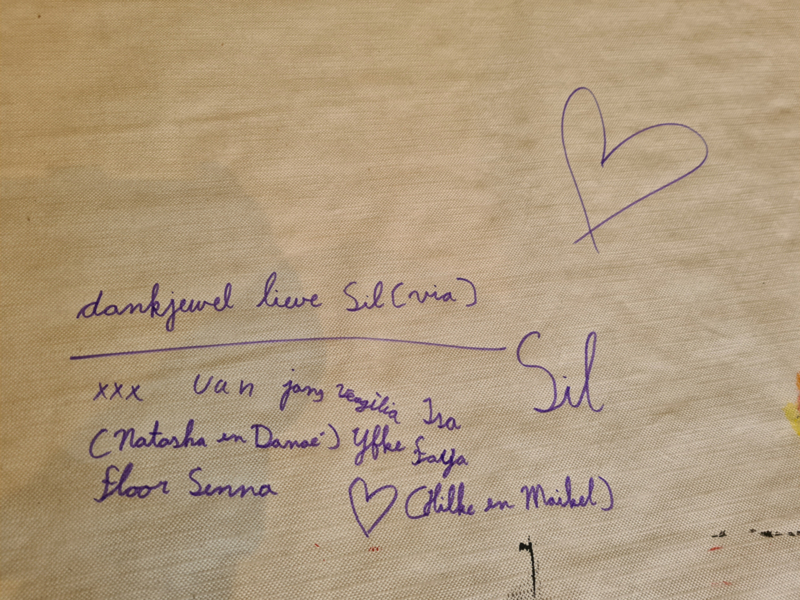 dankjewel lieve Sil(via)
Sil
xxx van Isa
(Natasha en Danaé) Yfke Faya
Floor Senna
(Hilke en Maikel)